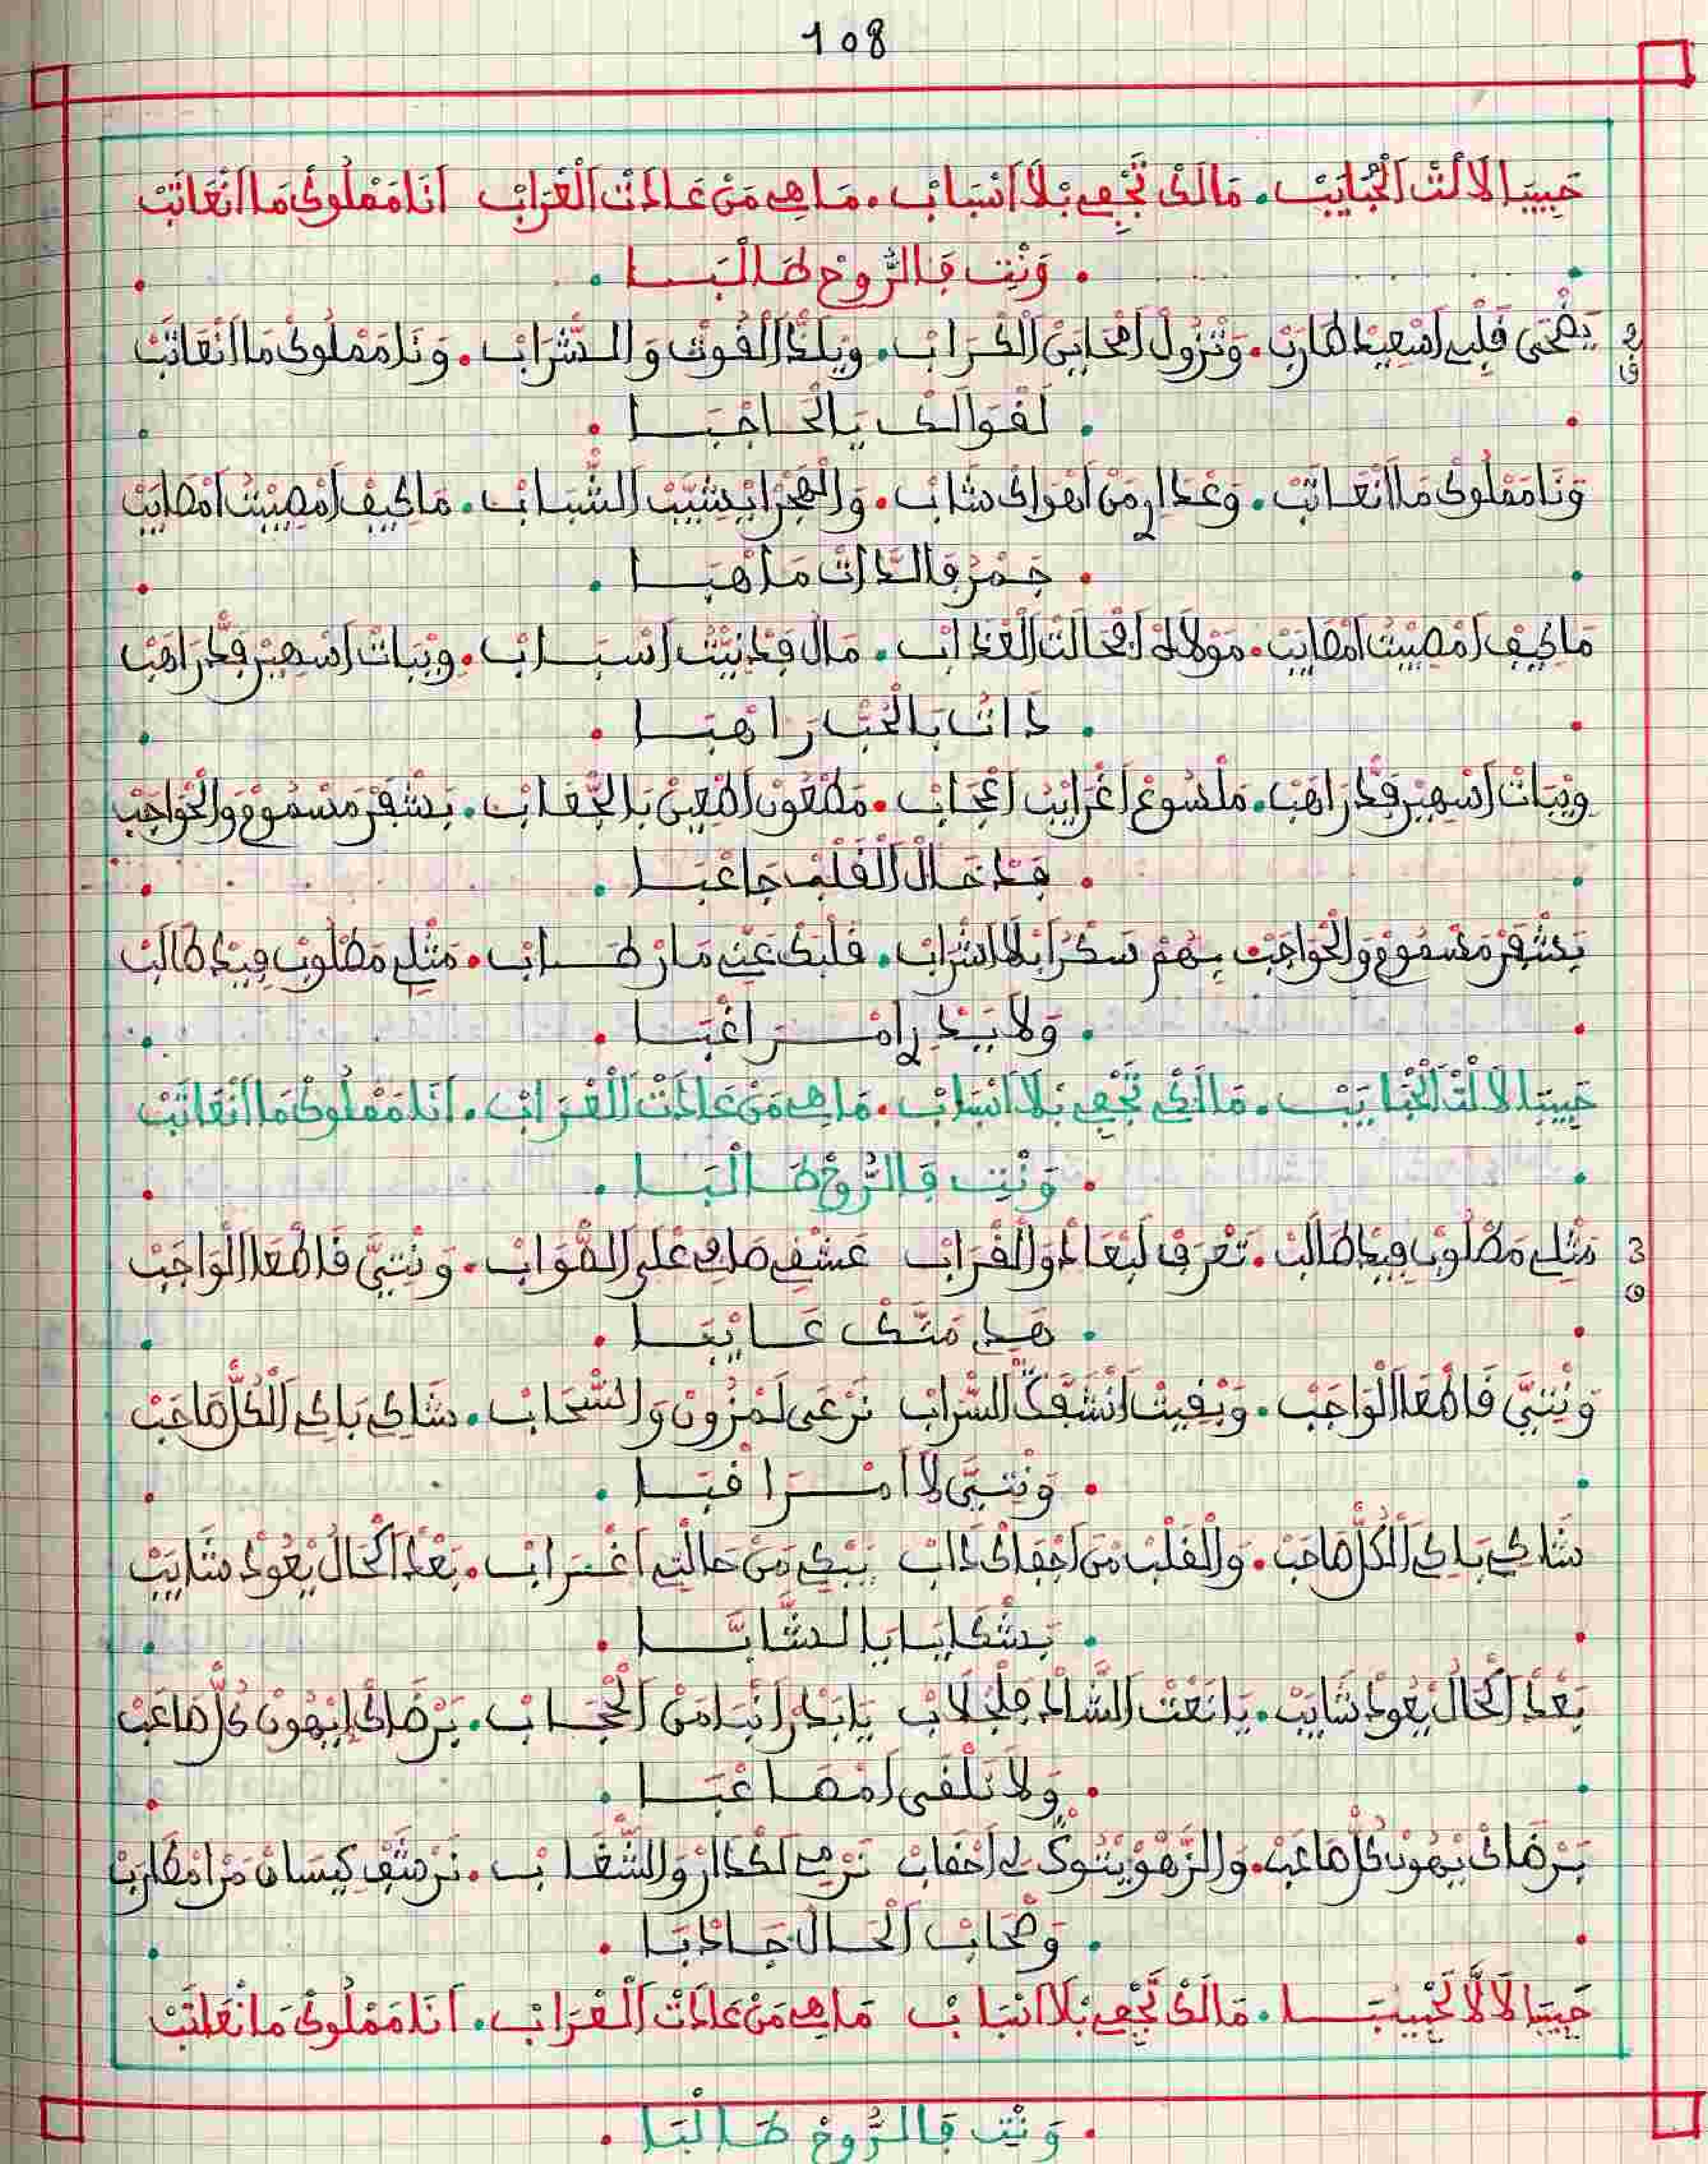 108
حَبِيبَا لَالَّتْ الْحْبَايَبْ. مَالَكْ تَجْفِي بْلَا اَسْبَابْ. مَاهِي مَنْ عَادَتْ الْعْرَابْ اَنَا مَمْلُوكْ مَا اَنْعَاتَبْ
. وَنْتِ فَالرُّوحْ طَالْبَا .
2 يَضْحَى قَلْبِي اسْعِيدْ طَارَبْ. وَتْزُولْ امْحَايَنْ الْكْرَابْ. وِيلَذْ الْقُوتْ وَالشّْرَابْ. وَنَا مَمْلُوكْ مَا اَنْعَاتَبْ
ق
. لَقْوَالَكْ يَا الْحَاجْبَا .
وَنَا مَمْلُوكْ مَا اَنْعَاتَبْ. وَعْدَارِي مَنْ اَهْوَاكْ شَابْ. وَالْهَجْرْ ايْشَيَّبْ الشّْبَابْ. مَا كِيفْ امْصِيبْتْ امْصَايَبْ
. جَمْرْ فَالذَّاتْ مَاهْبَا .
مَا كِيفْ امْصِيبْتْ امْصَايَبْ. مَوْلَاهْ افْحَالْتْ الْعْدَابْ. مَالْ فَدْنِيتُ اسْبَابْ. وِيْبَاتْ اسْهِيرْ فَدْرَاهَبْ
. دَاتُ بَالْحُبّْ رَاهْبَا .
وِيْبَاتْ اسْهِيرْ فَدْرَاهَبْ. مَلْسُوعْ اغْرَايَبْ اعْجَابْ. مَطْعُونْ اطْعِينْ بَالْحْقَابْ. بَشْفَرْ مَسْمُومْ وَالْحْوَاجَبْ
. فَدْخَالْ الْقَلْبْ جَاعْبَا .
بَشْفَرْ مَسْمُومْ وَالْحْوَاجَبْ بِهُمْ سَكْرَا بْلَا اشْرَابْ. قَلْبَكْ عَنِّي مَا رْطَابْ. مَثْلِي مَطْلُوبْ فِيدْ طَالَبْ
. وَلَا بِيدِي امْرَاغْبَا .
حَبِيبَا لَالَّتْ الْحْبَايَبْ. مَالَكْ تَجْفِي بْلَا اَسْبَابْ. مَاهِي مَنْ عَادَتْ الْعْرَابْ. اَنَا مَمْلُوكْ مَا اَنْعَاتَبْ
. وَنْتِ فَالرُّوحْ طَالْبَا .
3 مَثْلِي مَطْلُوبْ فِيدْ طَالَبْ. تَعْرَفْ لَبْعَادْ وَالْقْرَابْ عَشْقِي صَافِي عْلَى الصّْوَابْ. وَنْتِيَّ فَاطْمَا الْوَاجَبْ
ق
. هَدِي مَنَّكْ عَايْبَا .
وَنْتِيَّ فَاطْمَا الْوَاجَبْ. وَبْقِيتْ انْشَقَّكْ السّْرَابْ نَرْعَى لَمْزُونْ وَالسّْحَابْ. شَاكِي بَاكِي الْكُلّْ صَاحَبْ
. وَنْتِيَّ لَا امْرَاقْبَا .
شَاكِي بَاكِي الْكُلّْ صَاحَبْ. وَالْقَلْبْ مَنْ اجْفَاكْ دَابْ يَبْكِي مَنْ حَالْتِي اغْرَابْ. بَعْدْ الْحَالْ يْعُودْ شَايَبْ
. بَشْكَايَا يَا الشَّابَّا .
بَعْدْ الْحَالْ يْعُودْ شَايَبْ. يَا نَعْتْ الشَّادْ فَلْجْلَابْ يَا بَدْرْ اَنْبَا مَنْ الْحْجَابْ. بَرْضَاكْ ايْهُونْ كُلّْ صَاعَبْ
. وَلَا نَلْقَى امْصَاعْبَا .
بَرْضَاكْ يْهُونْ كُلّْ صَاعَبْ. وَالزّْهُو يْتُوكْ لِي احْقَابْ نَرْمِي لَكْدَارْ وَالشّْغَابْ. نَرْشَفْ كِيسَانْ مَنْ امْطَارَبْ
. وَصْحَابْ الْحَالْ جَادْبَا .
حَبِيبَا لَالَّا لَحْبِيبَا. مَالَكْ تَجْفِي بْلَا اَسْبَابْ مَاهِي مَنْ عَادَتْ الْعْرَابْ. اَنَا مَمْلُوكْ مَا نْعَاتَبْ
. وَنْتِ فَالرُّوحْ طَالْبَا .